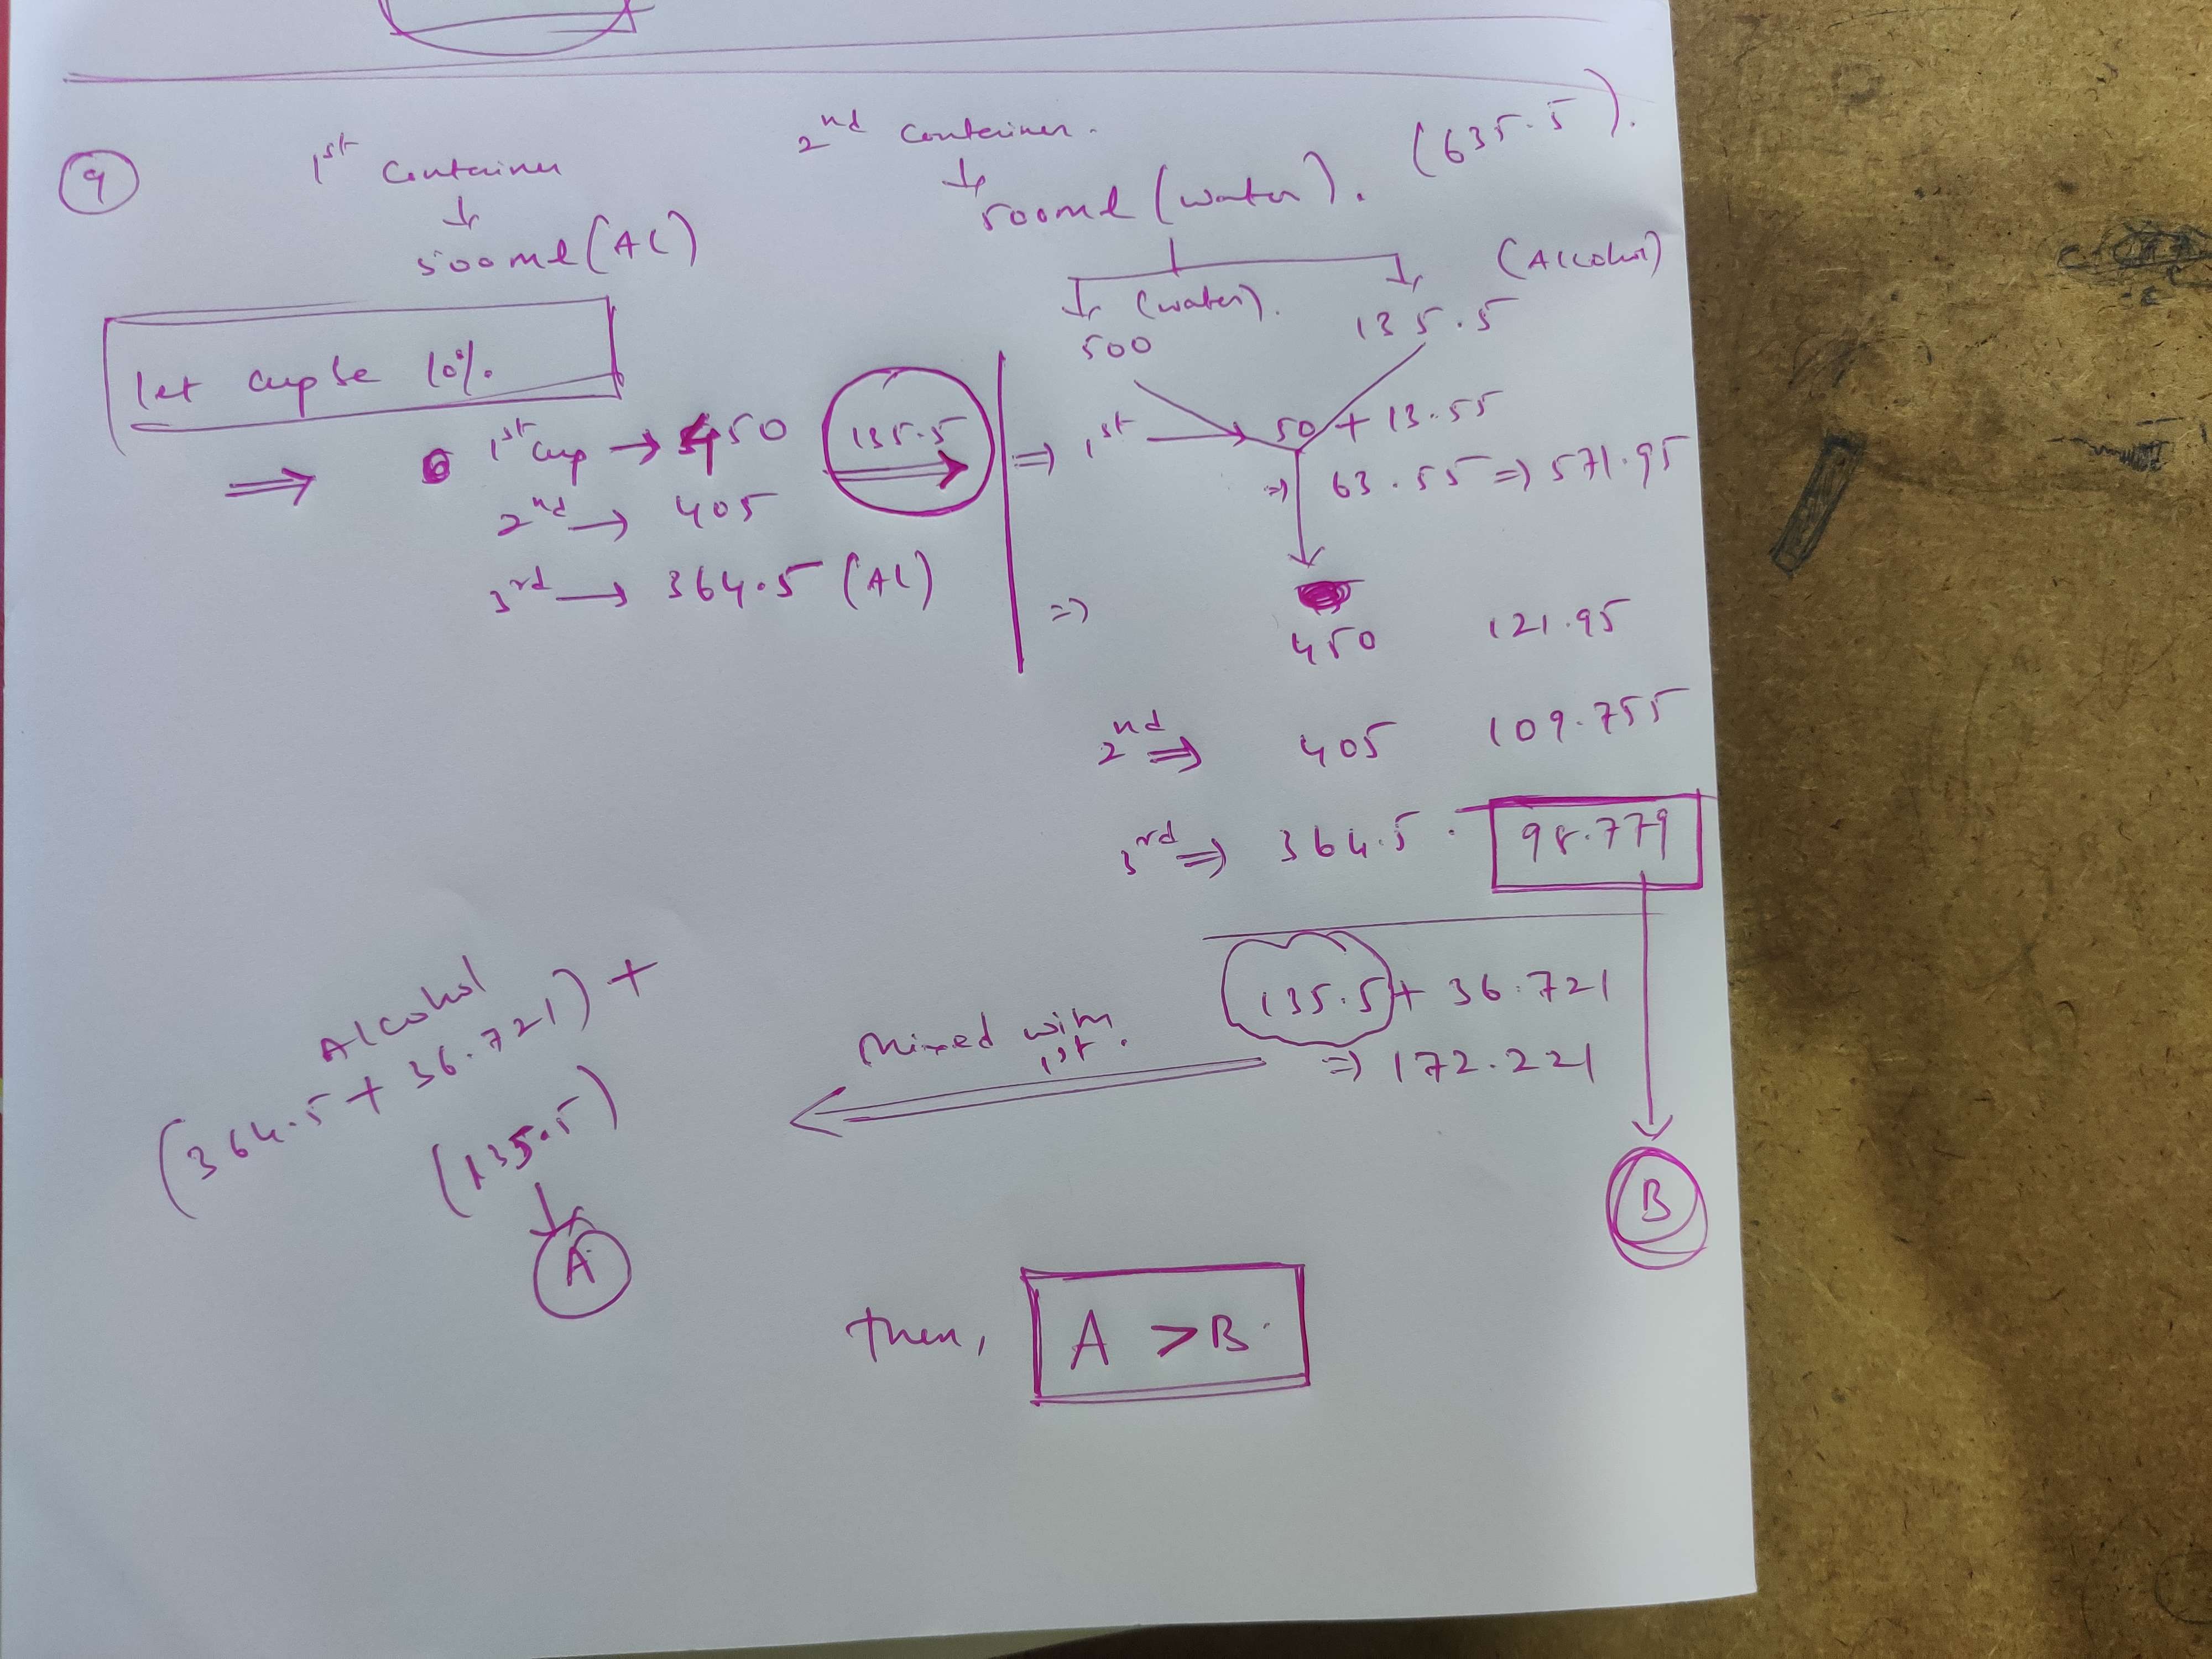 9
1st Container
500ml (AL)
2nd Container.
500ml (water). (635.5).
(water). (Alcohol)
500 135.5
let cup be 10%.
⇒ 1st cup → 450
2nd → 405
3rd → 364.5 (AL)
135.5
⇒ 1st → 50 + 13.55
⇒ 63.55 ⇒ 571.95
⇒ 450 121.95
2nd ⇒ 405 109.755
3rd ⇒ 364.5 . 98.779
B
135.5 + 36.721
⇒ 172.221
Mixed with
1st.
Alcohol
(364.5 + 36.721) +
(135.5)
A
then, A > B.